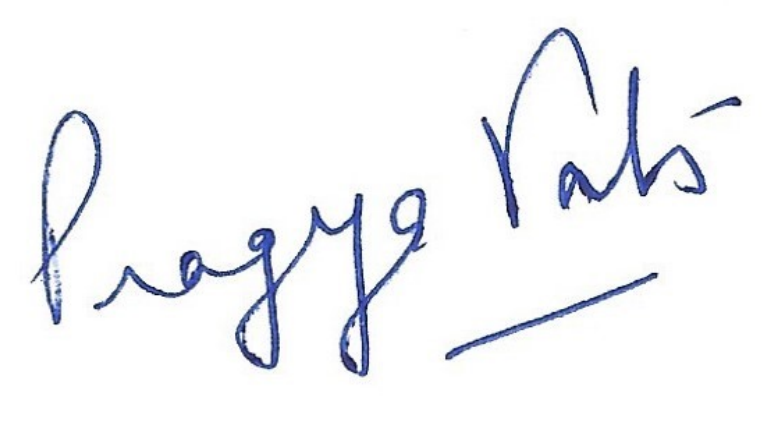 Pragya Vats